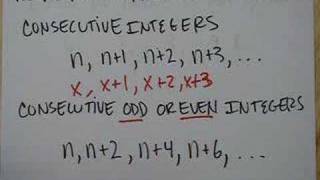 CONSECUTIVE INTEGERS
n, n+1, n+2, n+3, ...
x, x+1, x+2, x+3
CONSECUTIVE ODD OR EVEN INTEGERS
n, n+2, n+4, n+6, ...